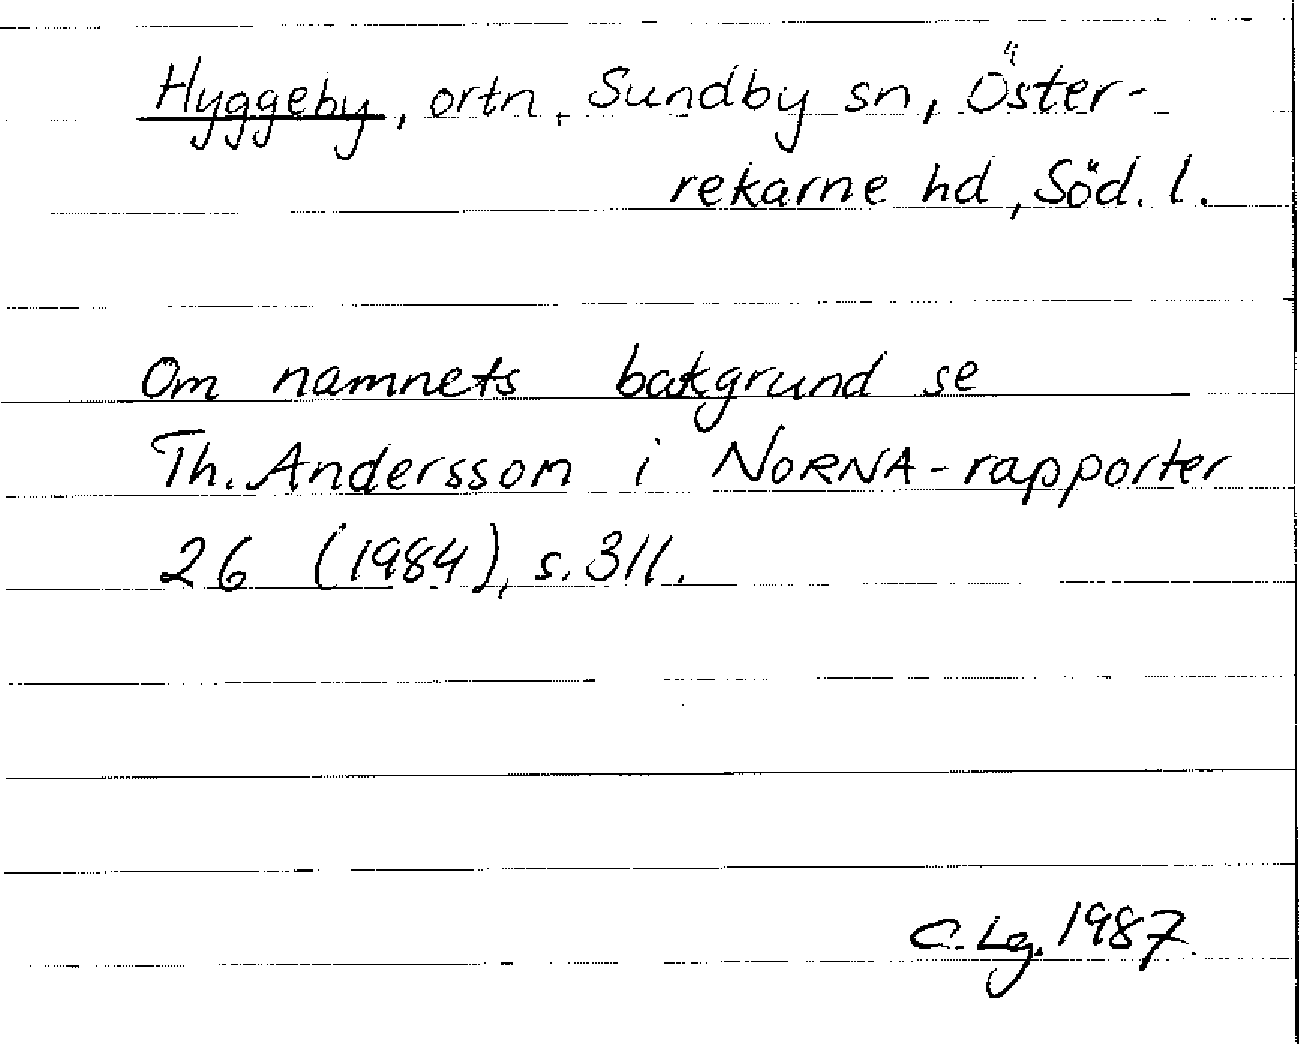 Hyggeby, ortn. Sundby sn, Öster-
rekarne hd, Söd. l.
Om namnets bakgrund se
Th. Andersson i NORNA-rapporter
26 (1984), s. 311.
C. Lg. 1987